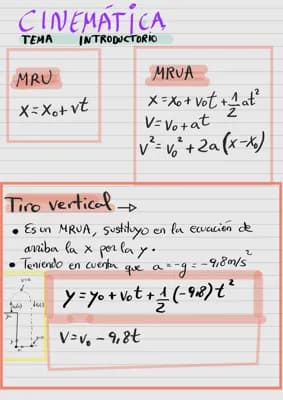 CINEMÁTICA
TEMA INTRODUCTORIO
MRU
x = x₀ + vt
MRUA
x = x₀ + v₀t + 1/2 at²
v = v₀ + at
v² = v₀² + 2a(x - x₀)
Tiro vertical →
• Es un MRUA, sustituyo en la ecuación de
arriba la x por la y.
• Teniendo en cuenta que a = -g = -9,8m/s²
y = y₀ + v₀t + 1/2 (-9,8) t²
v = v₀ - 9,8t